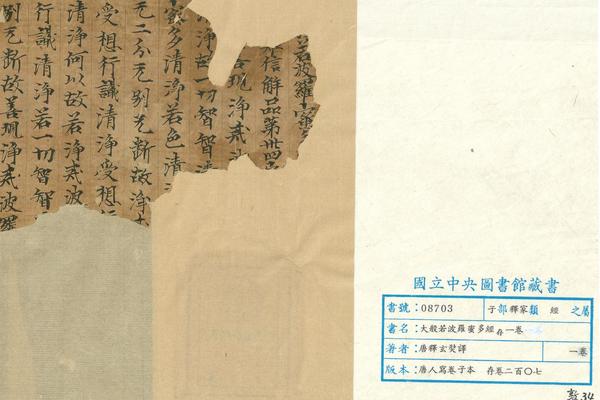 若波羅蜜多
信解品第卅四
現淨戒波
淨故一切智智
蜜多清淨若色清
无二分无別无断故淨
受想行識清淨受想行
清淨何以故若淨戒波
行識清淨若一切智智
別无断故善現淨戒波羅
國立中央圖書館藏書
書號：08703 子部釋家類 經 之屬
書名：大般若波羅蜜多經 存一卷
著者：唐釋玄奘譯 一卷
版本：唐人寫卷子本 存卷二百〇七
34